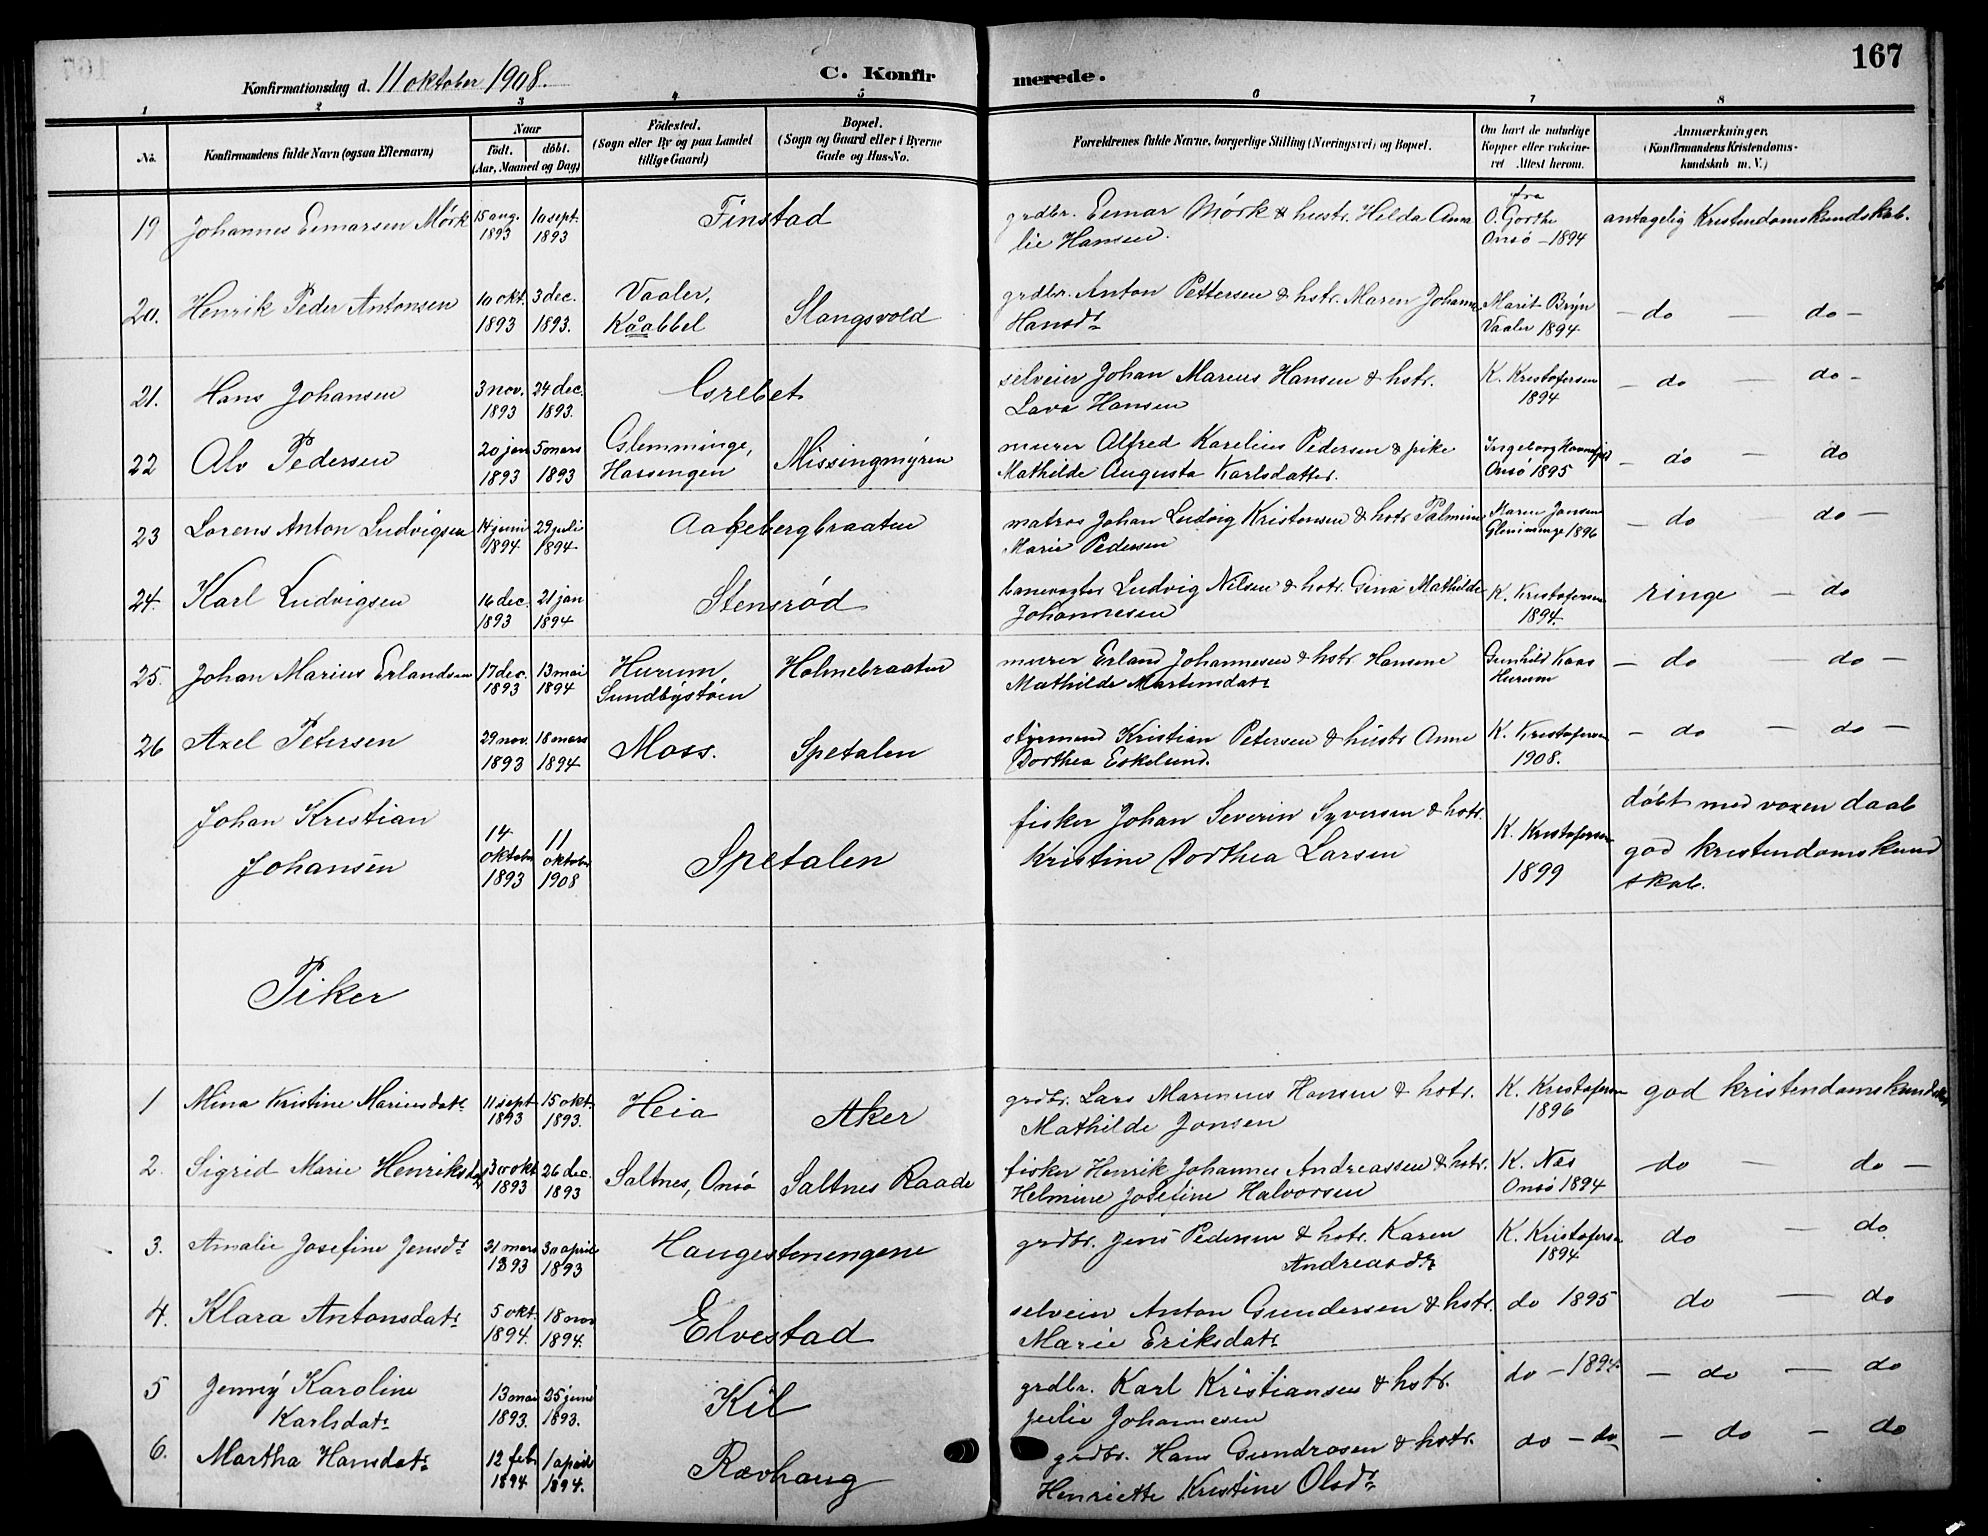 167
Konfirmationsdag d. 11 oktober 1908.
C. Konfirmerede.
1 2 3 4 5 6 7 8
No. Konfirmandens fulde Navn (ogsaa Efternavn) Naar født. døbt. (Aar, Maaned og Dag) Fødested. (Sogn eller By og paa Landet tillige Gaard) Bopæl. (Sogn og Gaard eller i Byerne Gade og Hus-No. Forældrenes fulde Navne, borgerlige Stilling (Næringsvei) og Bopæl. Om havt de naturlige Kopper eller vakcineret Attest herom. Anmærkninger. (Konfirmandens Kristendomskundskab m. V.)
19 Johannes Eimarsen Mörk 15 aug. 1893 10 sept. 1893 Finstad grdbr. Eimar Mörk & hustr. Hilda Amalie Hansen. fra O. Gorthe Onsö - 1894 antagelig Kristendomskundskab.
20. Henrik Peder Antonsen 10 okt. 1893 3 dec. 1893. Vaaler, Kååbbel Slangsvold grdbr. Anton Pettersen & hstr. Maren Johanne Hansdr Marit Bryn Vaaler 1894 - do - do -
21. Hans Johansen 3 nov. 1893 24 dec. 1893. Grebet selveier Johan Marius Hansen & hstr. Lava Hansen K. Kristofersen 1894 - do - do -
22 Alv Pedersen 20 jan 1893 5 mars 1893 Glemminge, Hassengen Missingmyren murer Alfred Karelius Pedersen & pike Mathilde Augusta Karlsdatter. Ingeborg Onsö 1895 - do - do
23 Lorens Anton Ludvigsen 14 juni 1894 29 juli 1894 Aakebergbraaten matros Johan Ludvig Kristensen & hstr Palmine Marie Pedersen Karen Jansen Glemminge 1896 - do do -
24. Karl Ludvigsen 16 dec. 1893 21 jan 1894 Stensrød banevogter Ludvig Nilsen & hstr. Gina Mathilde Johannesen K. Kristofersen 1894. ringe - do
25. Johan Marius Erlandsen 17 dec. 1893 13 mai 1894 Hurum, Sundbystöen Holmebraaten murer Erland Johannesen & hstr. Hansine Mathilde Martinsdatr Gunhild Kaas Hurum - do - do -
26 Axel Petersen 29 nov. 1893 18 mars 1894 Moss. Spetalen styrmand Kristian Petersen & hustr Anne Dorthea Eskelund. K. Kristofersen 1908. - do - do -
Johan Kristian Johansen 14 oktober 1893 11 oktober 1908 Spetalen fisker Johan Severin Syversen & hstr. Kristine Dorthea Larsen K. Kristofersen 1899 döbt med voxen daab god kristendomskundskab.
Piker
1 Mina Kristine Mariusdatr 11 sept 1893 15 okt. 1893. Heia Aker grdbr. Lars Marinius Hansen & hstr. Mathilde Jonsen K. Kristofersen 1896 god kristendomskundskab
2. Sigrid Marie Henriksdatr 30 okt 1893 26 dec. 1893 Saltnes, Onsö Saltnes Raade fisker Henrik Johannes Andreassen & hstr. Helmine Josefine Halvorsen K. Nes Onsö 1894 do - do -
3. Amalie Josefine Jensdr 31 mars 1893 30 april 1893 Haugestenengene grdbr. Jens Pedersen & hstr. Karen Andreasdr K. Kristofersen 1894 do - do.
4. Klara Antonsdatr 5 okt. 1894. 18 nov 1894. Elvestad selveier Anton Gundersen & hstr. Marie Eriksdatr do 1895 do - do
5 Jenny Karoline Karlsdatr 13 mai 1893. 25 juni 1893. Kil grdbr. Karl Kristiansen & hstr. Julie Johannesen do - 1894 - do - do
6. Martha Hansdatr 12 feb 1894 1 april 1894. Rævhaug grdbr. Hans Gundrosen & hstr. Henriette Kristine Olsdr do - do - do - do